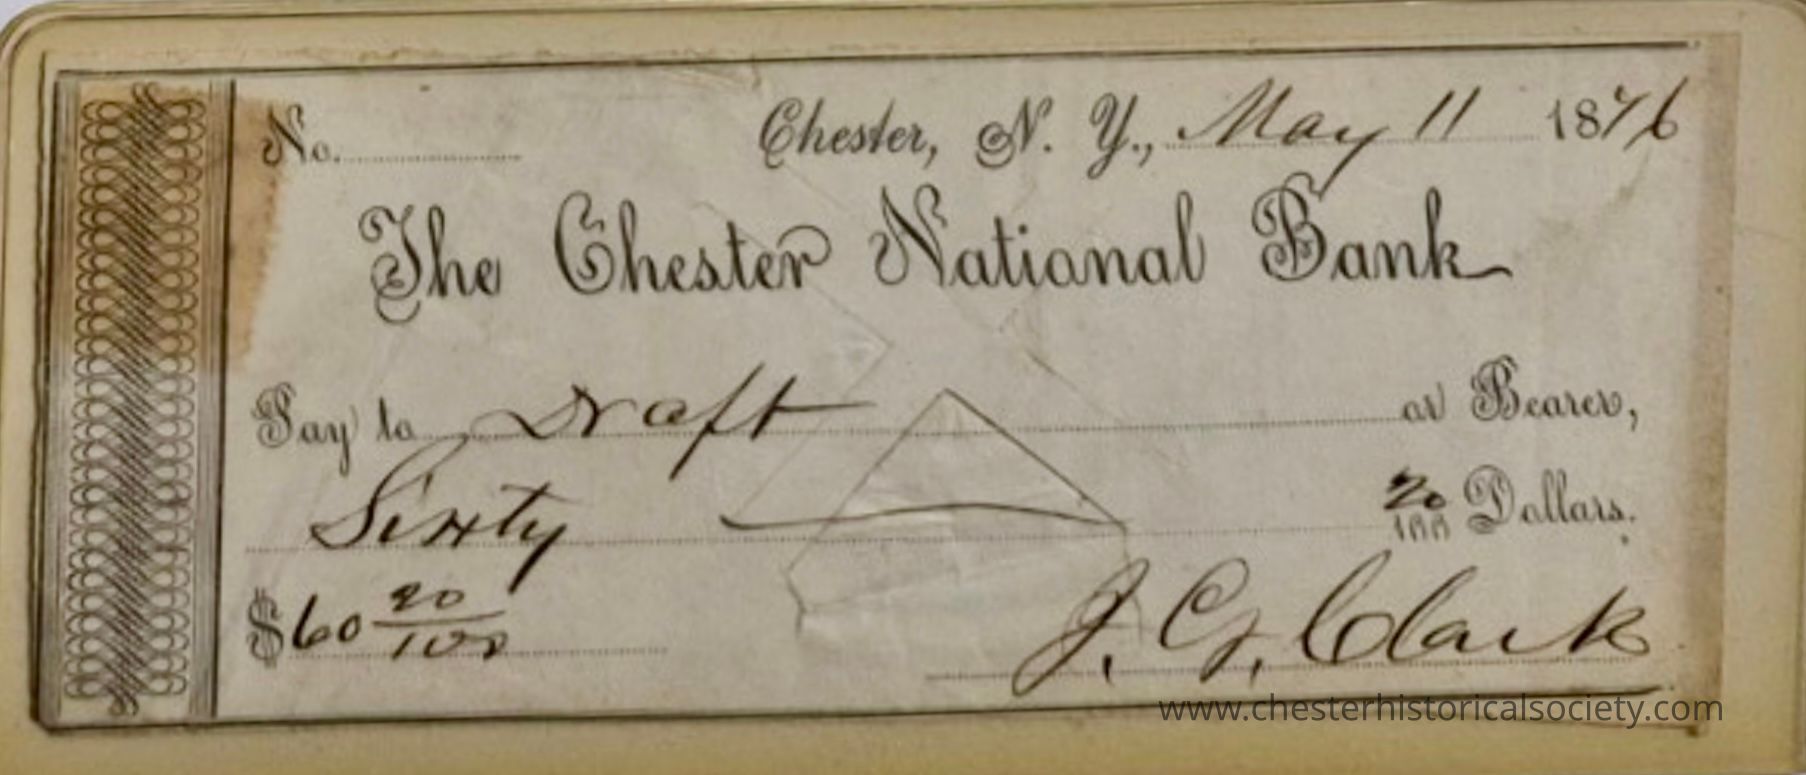 No. Chester, N. Y., May 11 1876
The Chester National Bank
Pay to Draft or Bearer,
Sixty 20/100 Dollars.
$60 20/100 J. G. Clark
www.chesterhistoricalsociety.com